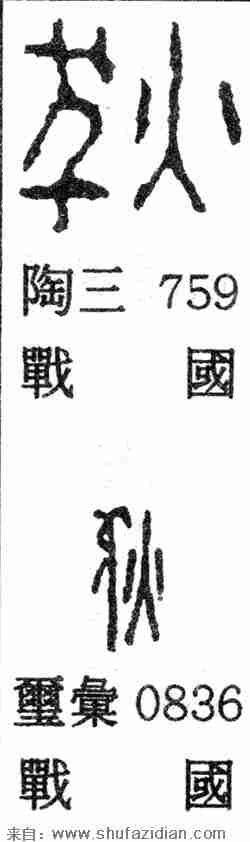 陶三 759
戰 國
璽彙 0836
戰 國
来自：www.shufazidian.com